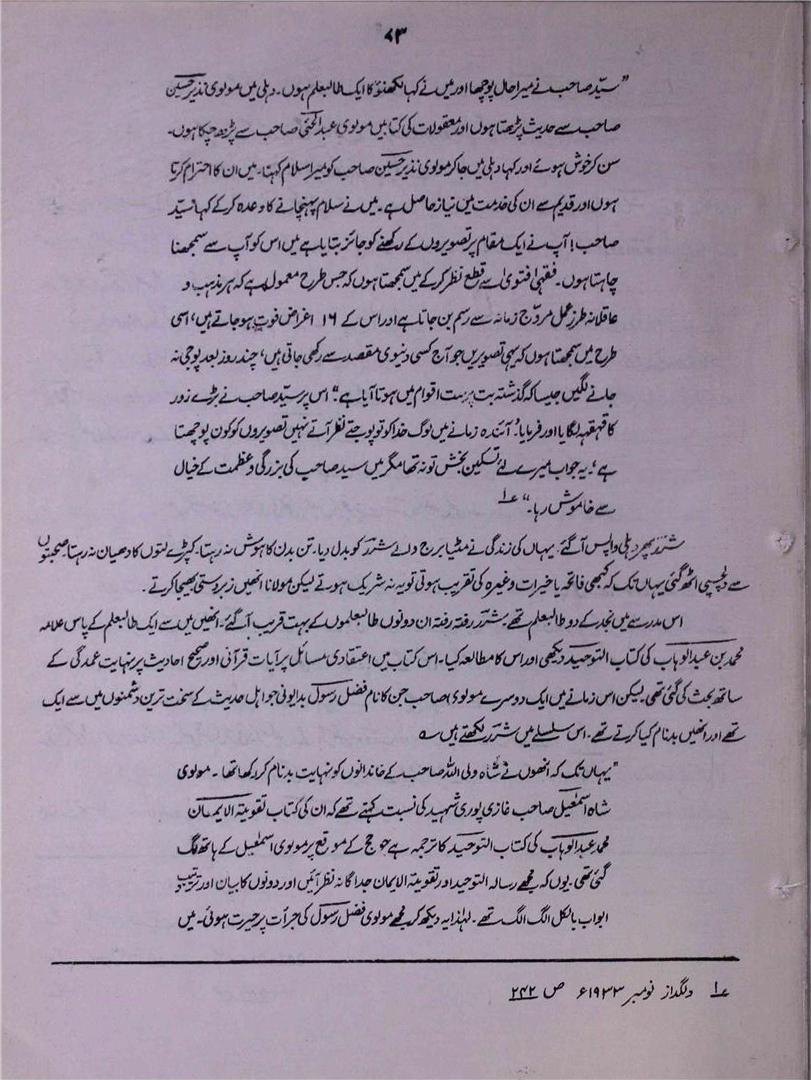 ۸۳
”سیّد صاحب نے میرا حال پوچھا اور میں نے کہا لکھنؤ کا ایک طالبعلم ہوں۔ دہلی میں مولوی نذیر حسین
صاحب سے حدیث پڑھتا ہوں اور معقولات کی کتابیں مولوی عبدالحئی صاحب سے پڑھ چکا ہوں۔
سن کر خوش ہوئے اور کہا دہلی میں جا کر مولوی نذیر حسین صاحب کو میرا سلام کہنا۔ میں ان کا احترام کرتا
ہوں اور قدیم سے ان کی خدمت میں نیاز حاصل ہے۔ میں نے سلام پہنچانے کا وعدہ کر کے کہا سیّد
صاحب! آپ نے ایک مقام پر تصویروں کے رکھنے کو جائز بتایا ہے میں اس کو آپ سے سمجھنا
چاہتا ہوں۔ فقہی افتویٰ سے قطع نظر کر کے میں سمجھتا ہوں کہ جس طرح معمول ہے کہ ہر مذہب و
عاقلانہ طرزِ عمل مروّج زمانہ سے رسم بن جاتا ہے اور اس کے ۱۶ اغراض فوت ہو جاتے ہیں، اسی
طرح میں سمجھتا ہوں کہ یہی تصویریں جو آج کسی دنیوی مقصد سے رکھی جاتی ہیں، چند روز بعد پوجی نہ
جانے لگیں جیسا کہ گذشتہ بت پرست اقوام میں ہوتا آیا ہے۔“ اس پر سیّد صاحب نے بڑے زور
کا قہقہہ لگایا اور فرمایا ”آئندہ زمانے میں لوگ خدا کو تو پوجتے نظر آتے نہیں تصویروں کو کون پوجتا
ہے“۔ یہ جواب میرے لئے تسکین بخش تو نہ تھا مگر میں سید صاحب کی بزرگی و عظمت کے خیال
سے خاموش رہا۔“ ؏۱
شررؔ پھر دہلی واپس آ گئے۔ یہاں کی زندگی نے مٹیا برج والے شررؔ کو بدل دیا۔ تن بدن کا ہوش نہ رہتا۔ کپڑے لتوں کا دھیان نہ رہتا۔ صحبتوں
سے دلچسپی اٹھ گئی یہاں تک کہ کبھی فاتحہ یا خیرات وغیرہ کی تقریب ہوتی تو یہ نہ شریک ہوتے لیکن مولانا انھیں زبردستی بھیجا کرتے۔
اس مدرسے میں نجد کے دو طالبعلم تھے۔ شررؔ رفتہ رفتہ ان دونوں طالبعلموں کے بہت قریب آ گئے۔ انھیں میں سے ایک طالبعلم کے پاس علامہ
محمد بن عبدالوہاب کی کتاب التوحید دیکھی اور اس کا مطالعہ کیا۔ اس کتاب میں اعتقادی مسائل پر آیات قرآنی اور صحیح احادیث پر نہایت عمدگی کے
ساتھ بحث کی گئی تھی۔ لیکن اس زمانے میں ایک دوسرے مولوی صاحب جن کا نام فضل رسول بدایونی جو اہل حدیث کے سخت ترین دشمنوں میں سے ایک
تھے اور انھیں بدنام کیا کرتے تھے۔ اس سلسلے میں شررؔ لکھتے ہیں۔
”یہاں تک کہ انھوں نے شاہ ولی اللہ صاحب کے خاندانوں کو نہایت بدنام کر رکھا تھا۔ مولوی
شاہ اسمٰعیل صاحب غازی پوری شہید کی نسبت کہتے تھے کہ ان کی کتاب تقویتہ الایمان
محمد عبدالوہاب کی کتاب التوحید کا ترجمہ ہے جو حج کے موقع پر مولوی اسمٰعیل کے ہاتھ لگ
گئی تھی۔ یوں کہ مجھے رسالہ التوحید اور تقویتہ الایمان جداگانہ نظر آئیں اور دونوں کا بیان اور ترتیب
ابواب بالکل الگ الگ تھے۔ لہٰذا یہ دیکھ کر مجھے مولوی فضل رسول کی جرأت پر حیرت ہوئی۔ میں
؏۱ دلگداز نومبر ۱۹۳۳ء ص ۲۴۲